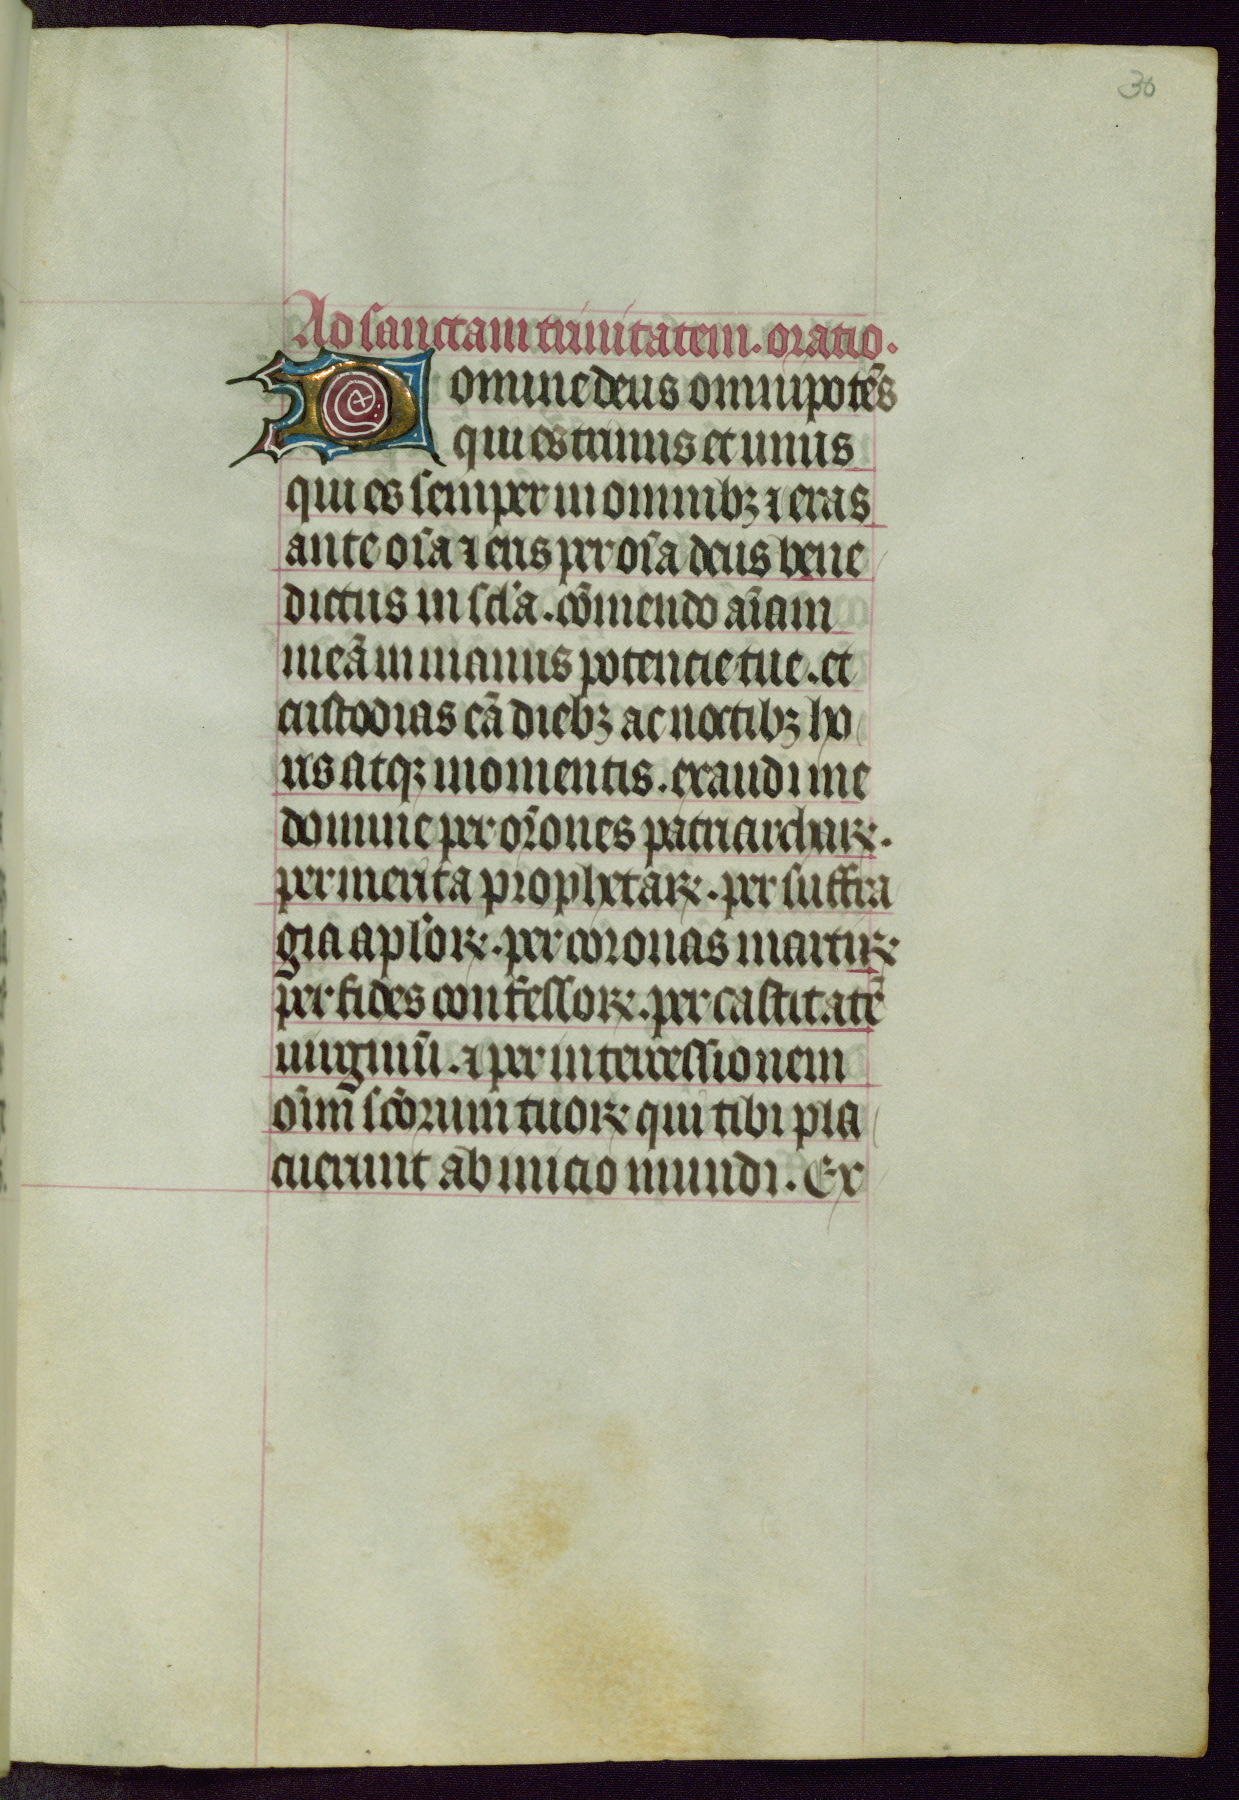 30
Ad sanctam trinitatem. oratio.
Domine deus omnipotē̄s
qui es trinus et unus
qui es semper in omnibꝫ ⁊ eras
ante oı̄a ⁊ eris per oı̄a deus bene
dictus in scl̄a. cōmendo aı̄am
meā in manus potencie tue. et
custodias eā diebꝫ ac noctibꝫ ho
ris atqꝫ momentis. exaudi me
domine per orōnes patriarchaꝝ.
per merita prophetaꝝ. per suffra
gia aplōꝝ. per coronas martirꝝ
per fides confessoꝝ. per castitatē
uirginū. ⁊ per intercessionem
oı̄m scōrum tuoꝝ qui tibi pla
cuerunt ab inicio mundi. Ex